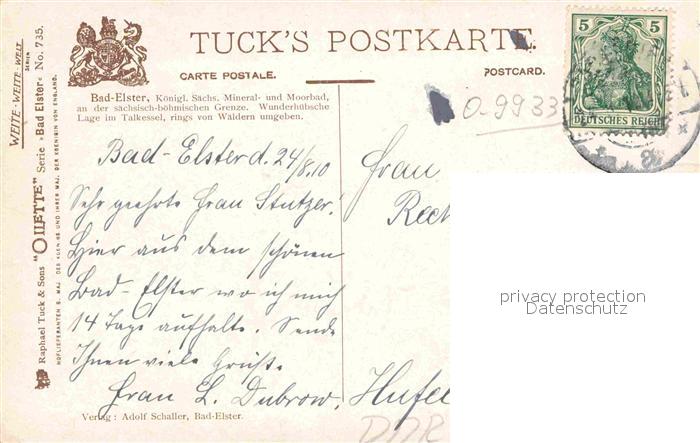 TUCK'S POSTKARTE.
CARTE POSTALE.
POSTCARD.
Bad-Elster, Königl. Sächs. Mineral- und Moorbad,
an der sächsisch-böhmischen Grenze. Wunderhübsche
Lage im Talkessel, rings von Wäldern umgeben.
WEITE-WEITE-WELT
BERLIN
Raphael Tuck & Sons "OILETTE" Serie »Bad Elster« No. 735.
HOFLIEFERANTEN S. MAJ. DES KOENIGS UND IHRER MAJ. DER KOENIGIN VON ENGLAND.
5 5
DEUTSCHES REICH
0-9933
Bad-Elster d. 24/8.10
Sehr geehrte Frau Stutzer!
Hier aus dem schönen
Bad-Elster wo ich mich
14 Tage aufhalte. Sende
Ihnen viele Grüße.
Frau L. Dubrow.
Frau
Hufel
DDR
Verlag: Adolf Schaller, Bad-Elster.
privacy protection
Datenschutz